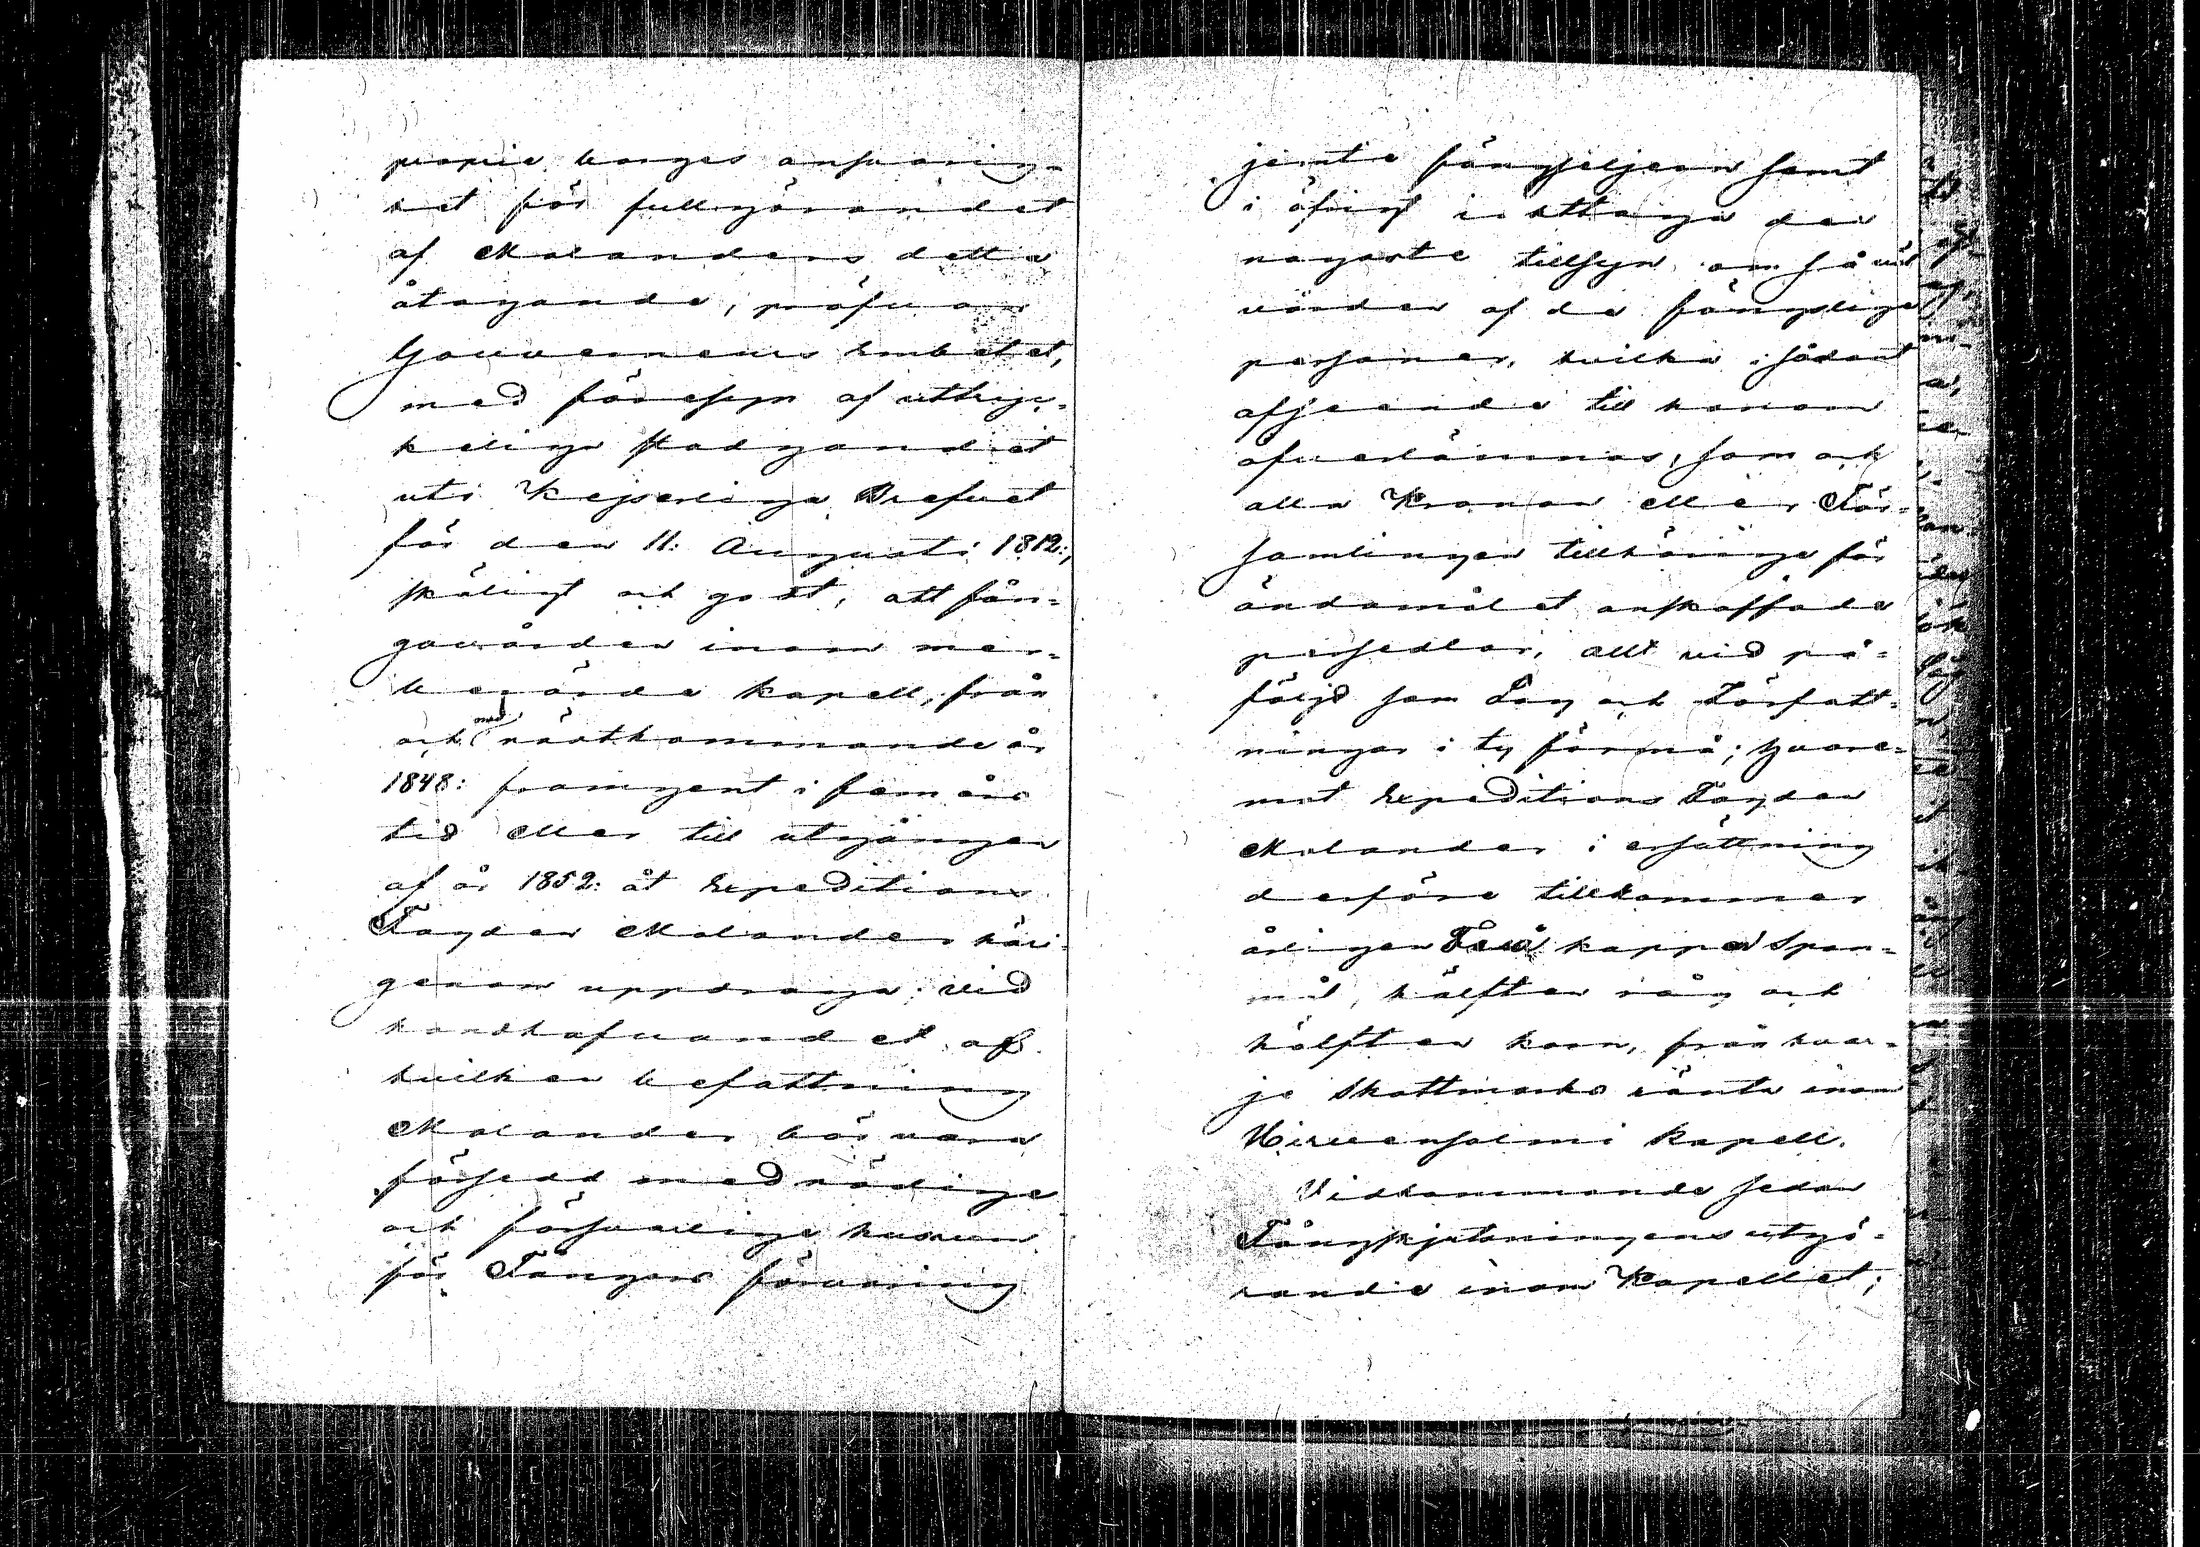 proprie borges ansvarig-
het för fullgörandet
af Molanders detta
åtagande, pröfvar
Gouverneurs Embetet,
med föresyn af uttryc-
keliga stadgandet
uti Kejserliga Brefvet
för den 11: Augusti 1812:,
skäligt och godt, att fån-
gavården inom mer-
berörde kapell, från
och med nästkommande år
1848: framgent i fem års
tid eller till utgången
af år 1852: åt Expeditions
Fogden Molander häri-
genom uppdraga; vid
handhafvandet af
hvilken befattning
Molander bör vara
försedd med nödige
och försvarlige husrum
för Fångars förvaring
jemte fångseljern samt
i öfrigt iakttaga den
nogaste tillsyn om så väl
vården af de fängslige
personer, hvilka i sådant
afseende till honom
öfverlämnas, som och
alla Kronan eller För-
samlingen tillhörige för
ändamålet anskaffade
persedlar, allt vid på-
följd som Lag och Författ-
ningar i ty förmå; hvare-
mot Expeditions Fogden
Molander i ersättning
derföre tillkommer
årligen Två kappar Span-
mål, hälften råg och
hälften korn, från hvar-
je Skattmarks ränta inom
Hirvensalmi Kapell.
Vidkommande sedan
Fångskjutsningens utgö-
rande inom Kapellet;